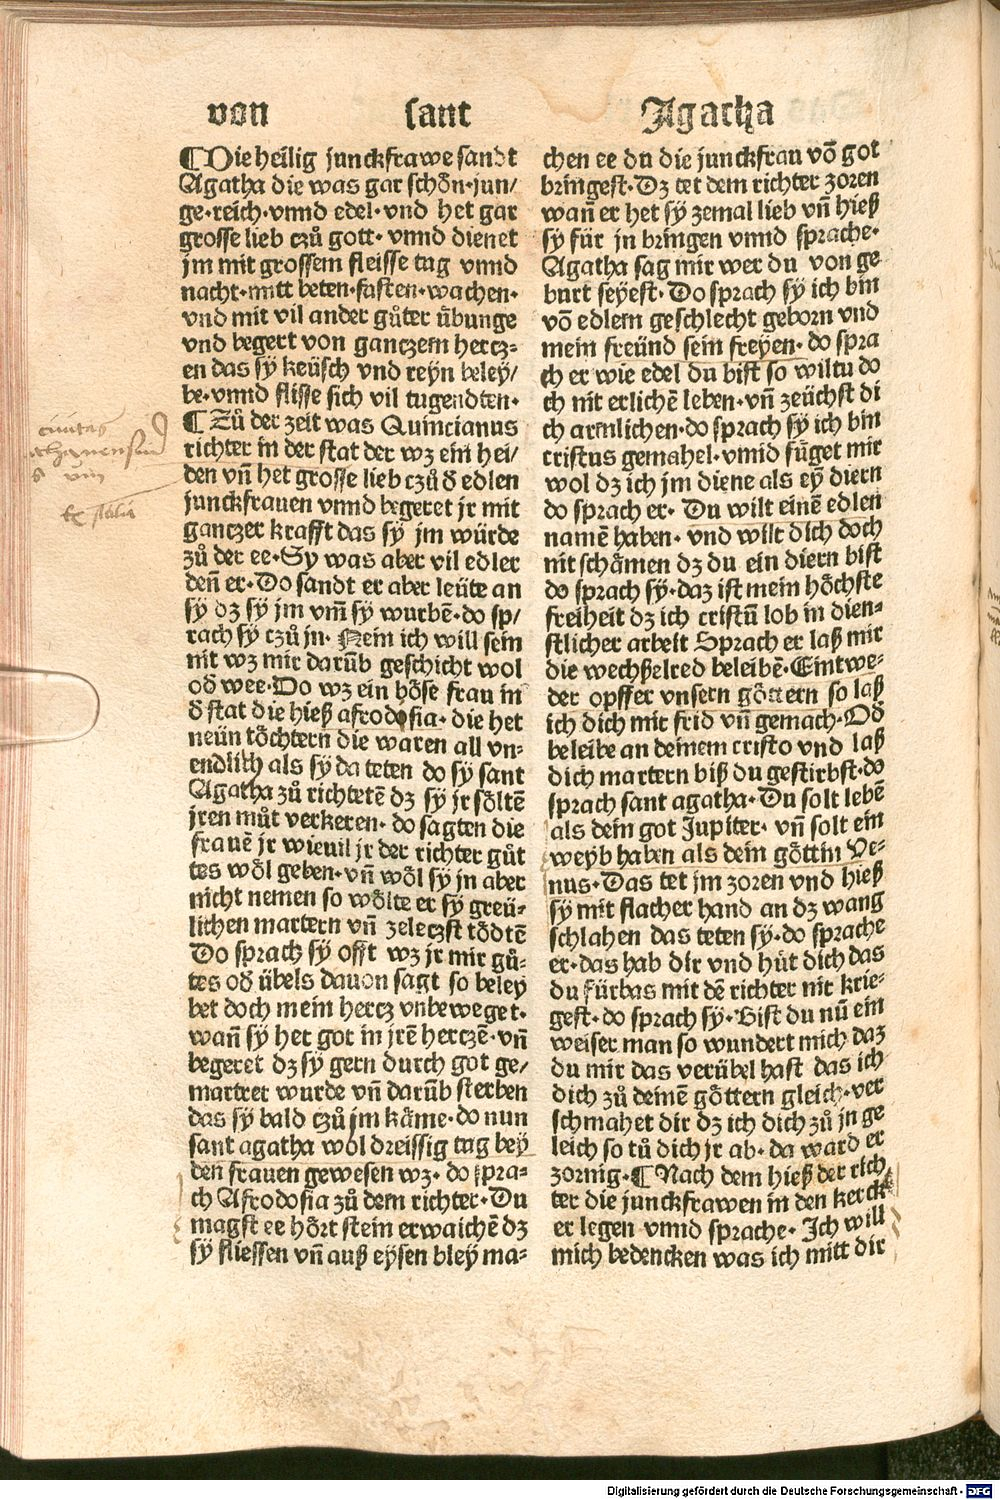 von sant Agatha
¶Die heilig junckfrawe sandt
Agatha die was gar schön·jun/
ge·reich·vnnd edel·vnd het gar
grosse lieb czů gott· vnnd dienet
jm mit grossem fleisse tag vnnd
nacht·mitt beten·fasten·wachen·
vnd mit vil ander gůter übunge
vnd begert von ganczem hercz⸗
en das sÿ keüsch vnd reÿn beleÿ/
be·vnnd flisse sich vil tugendten·
¶ Zů der zeit was Quincianus
richter in der stat der wz ein hei/
den vn̄ het grosse lieb czů d̄ edlen
junckfrauen vnnd begeret jr mit
ganczer krafft das sÿ jm würde
zů der ee·Sy was aber vil edler
den̄ er·Do sandt er aber leüte an
sÿ dz sÿ jm vm̄ sÿ wurbē·do sp/
rach sÿ czů jn· Nein ich will sein
nit wz mir darūb geschicht wol
od̄ wee·Do wz ein böse frau in
d̄ stat die hieß afrodosia·die het
neün töchtern die waren all vn⸗
endlich als sÿ da teten do sÿ sant
Agatha zů richtetē dz sÿ jr söltē
jren můt verkeren· do sagten die
frauē jr wieuil jr der richter gůt
tes wöl geben·vn̄ wöl sÿ jn aber
nicht nemen so wölte er sÿ greü⸗
lichen martern vn̄ zeleczst tödtē
Do sprach sÿ offt wz jr mir gů⸗
tes od̄ übels dauon sagt so beley
bet doch mein hercz vnbeweget·
wan̄ sÿ het got in jrē herczē·vn̄
begeret dz sÿ gern durch got ge/
martret wurde vn̄ darūb sterben
das sÿ bald czů jm käme·do nun
sant agatha wol dreissig tag beÿ
den frauen gewesen wz· do spra⸗
ch Afrodosia zů dem richter·Du
magst ee hört stein erwaichē dz
sÿ fliessen vn̄ auß eÿsen bleÿ ma⸗
chen ee du die junckfrau vō got
bringest·Dz tet dem richter zoren
wan̄ er het sÿ zemal lieb vn̄ hieß
sÿ für jn bringen vnnd sprache·
Agatha sag mir wer du von ge
burt seÿest·Do sprach sÿ ich bin
vō edlem geschlecht geborn vnd
mein freünd sein freÿen·do spra
ch er wie edel du bist so wiltu do
ch nit erlichē leben·vn̄ zeüchst di
ch armlichen·do sprach sÿ ich bin
cristus gemahel·vnnd füget mir
wol dz ich jm diene als eÿ diern
do sprach er· Du wilt einē edlen
namē haben· vnd wilt dich doch
nit schämen dz du ein diern bist
do sprach sÿ·daz ist mein höchste
freiheit dz ich cristū lob in dien⸗
stlicher arbeit Sprach er laß mir
die wechßelred beleibē·Eintwe⸗
der opffer vnsern göttern so laß
ich dich mit frid vn̄ gemach·Od̄
beleibe an deinem cristo vnd laß
dich martern biß du gestirbst·do
sprach sant agatha·Du solt lebē
als dein got Jupiter· vn̄ solt ein
weyb haben als dein göttin Ve⸗
nus·Das tet jm zoren vnd hieß
sÿ mit flacher hand an dz wang
schlahen das teten sÿ·do sprache
er·das hab dir vnd hüt dich das
du fürbas mit dē richter nit krie⸗
gest·do sprach sÿ·Bist du nū ein
weiser man so wundert mich daz
du mir das verübel hast das ich
dich zů deinē göttern gleich·ver
schmahet dir dz ich dich zů jn ge
leich so tů dich jr ab·da ward er
zornig·¶ Nach dem hieß der rich
ter die junckfrawen in den kerck
er legen vnnd sprache·Ich will
mich bedencken was ich mitt dir
Digitalisierung gefördert durch die Deutsche Forschungsgemeinschaft - DFG